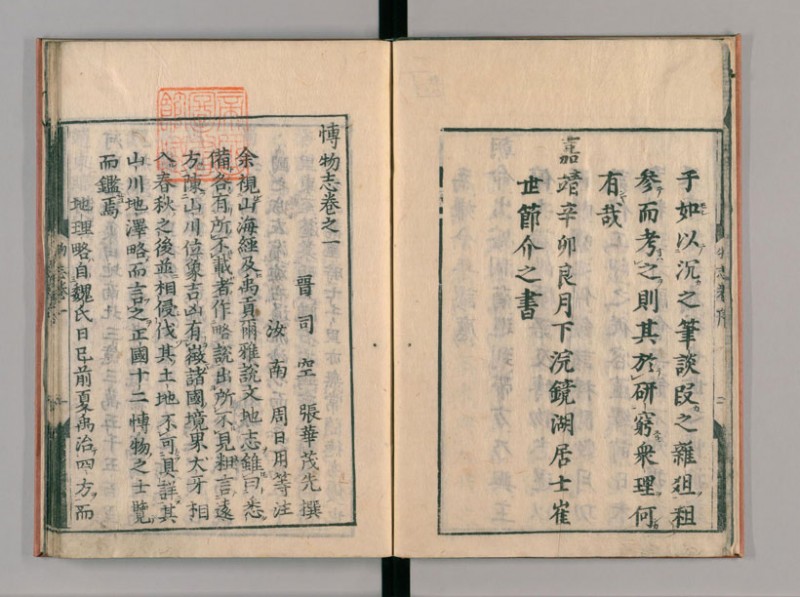 子如以沉之筆談段之雜爼租
參而考之則其於研窮衆理何
有哉
嘉靖辛卯良月下浣鏡湖居士崔
世節介之書
博物志卷之一
晉司空張華茂先撰
汝南周日用等注
余視山海經及禹貢爾雅說文地志雖曰悉
備各有所不載者作略說出所不見粗言遠
方陳山川位象吉凶有徵諸國境界犬牙相
入春秋之後並相侵伐其土地不可具詳其
山川地澤略而言之正國十二博物之士覽
而鑑焉
地理略自魏氏日已前夏禹治四方而